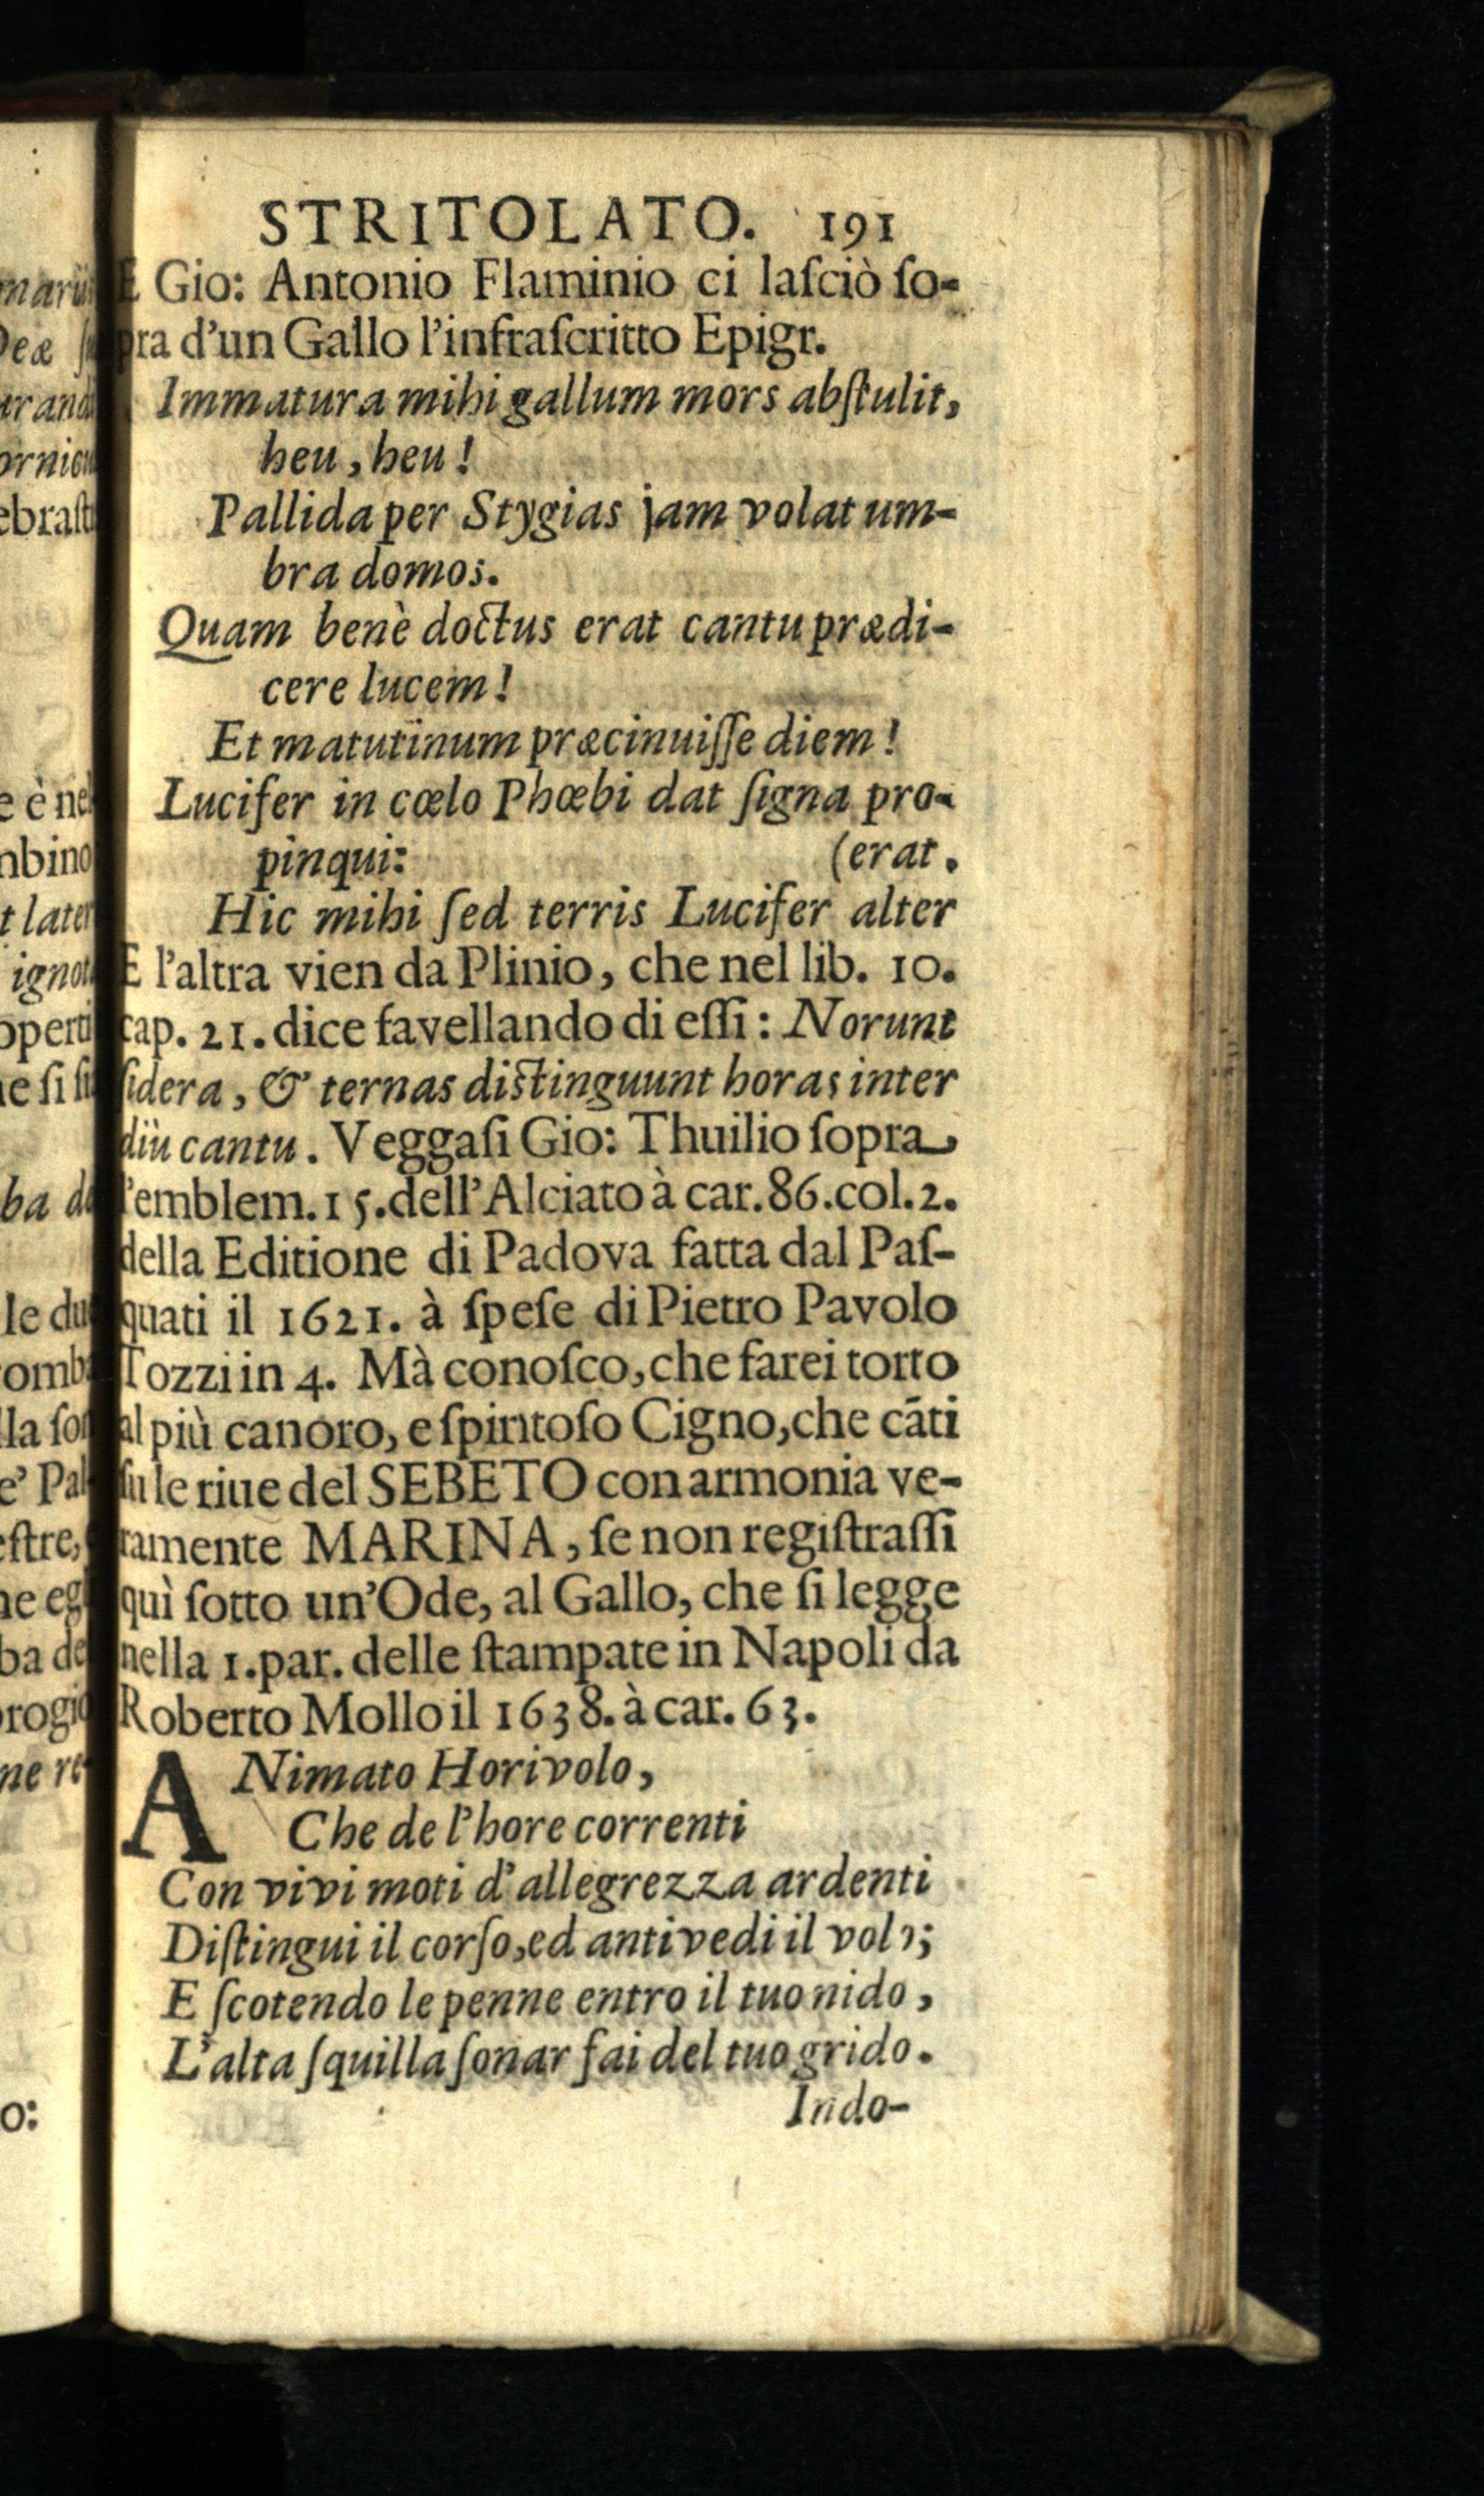 STRITOLATO. 191
E Gio: Antonio Flaminio ci laſciò ſo-
pra d'un Gallo l'infraſcritto Epigr.
Immatura mihi gallum mors abſtulit,
heu, heu!
Pallida per Stygias jam volat um-
bra domos.
Quam benè doctus erat cantu prædi-
cere lucem!
Et matutinum præcinuiſſe diem!
Lucifer in cœlo Phœbi dat ſigna pro-
pinqui: (erat.
Hic mihi ſed terris Lucifer alter
E l'altra vien da Plinio, che nel lib. 10.
cap. 21. dice favellando di eſſi: Norunt
ſidera, & ternas distinguunt horas inter
diù cantu. Veggaſi Gio: Thuilio ſopra
l'emblem. 15. dell'Alciato à car. 86. col. 2.
della Editione di Padova fatta dal Paſ-
quati il 1621. à ſpeſe di Pietro Pavolo
Tozzi in 4. Mà conoſco, che farei torto
al più canoro, e ſpiritoſo Cigno, che cãti
ſu le riue del SEBETO con armonia ve-
ramente MARINA, ſe non regiſtraſſi
quì ſotto un'Ode, al Gallo, che ſi legge
nella 1. par. delle ſtampate in Napoli da
Roberto Mollo il 1638. à car. 63.
ANimato Horivolo,
Che de l'hore correnti
Con vivi moti d'allegrezza ardenti
Diſtingui il corſo, ed antivedi il volo;
E ſcotendo le penne entro il tuo nido,
L'alta ſquilla ſonar fai del tuo grido.
Indo-